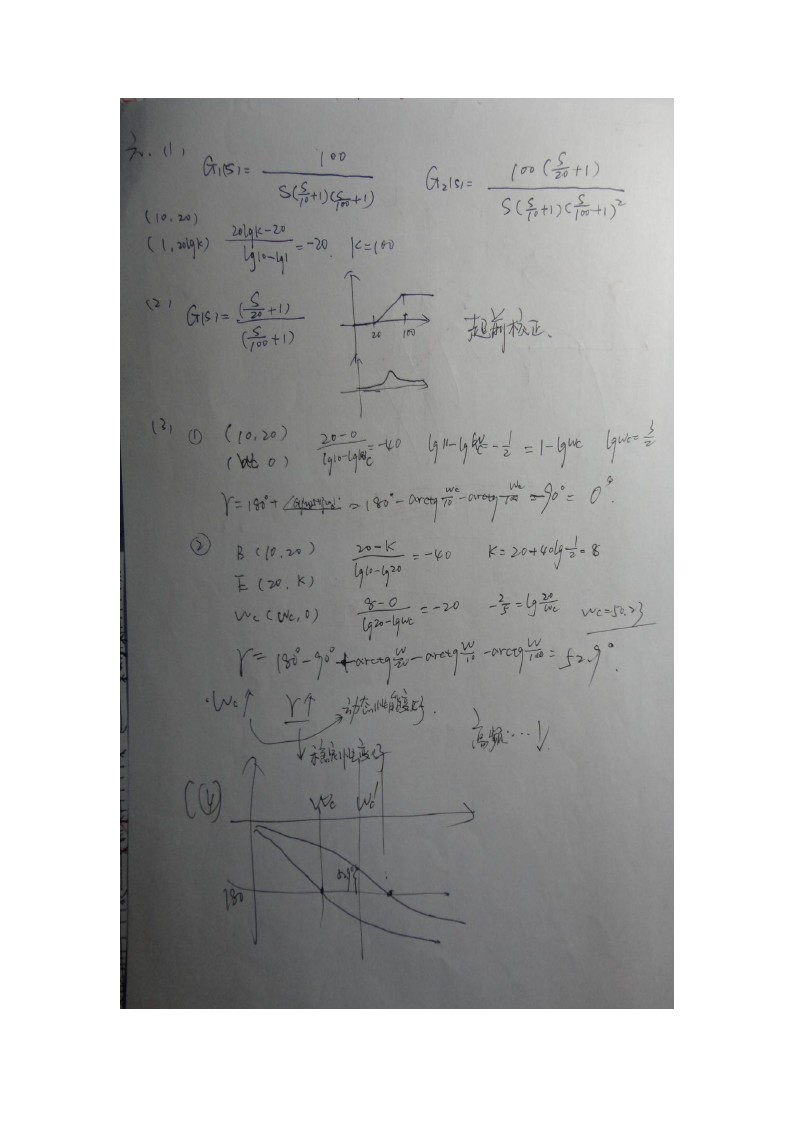 六. (1) G₁(s) = 100 / S(S/10+1)(S/100+1)    G₂(s) = 100(S/20+1) / S(S/10+1)(S/100+1)²
(10,20)
(1,20lgK)  (20lgK-20)/(lg10-lg1) = -20.  K=100
(2) G(s) = (S/20+1) / (S/100+1)    超前校正.
20 100
(3) ① (10,20)  (20-0)/(lg10-lgWc) = -40  = -1/2 = 1-lgWc  lgWc = 3/2
0)
γ=180°+ = 180°-arctg Wc/10 -arctg Wc/100 -90° = 0°.
② B (10.20)  (20-K)/(lg10-lg20) = -40  K=20+40lg 1/2 = 8
E (20.K)
Wc (Wc,0)  (8-0)/(lg20-lgWc) = -20  -2/5 = lg 20/Wc  Wc=50.23
γ = 180°-90°+arctg W/20 -arctg W/10 -arctg W/100 = 52.9°.
Wc↑ γ↑ 动态性能变好.
高频…↓
稳定性变好
(4) Wc Wc'
180